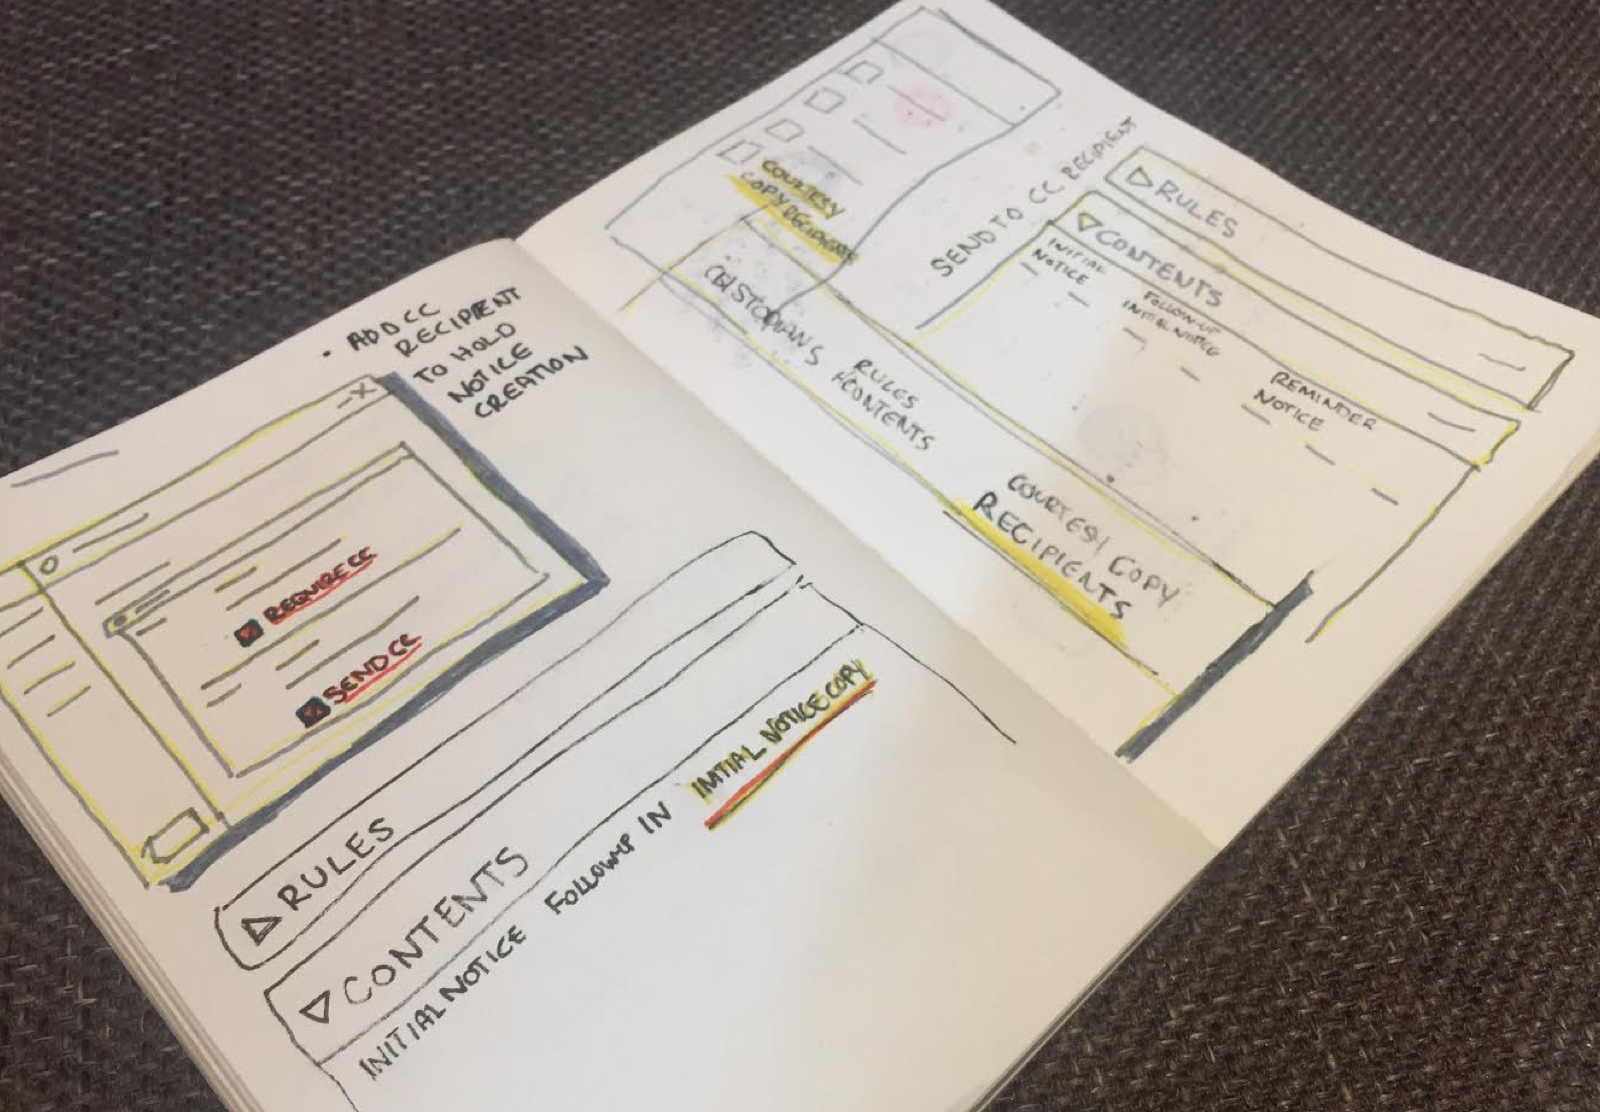 • ADD CC
RECIPIENT
TO HOLD
NOTICE
CREATION
X
REQUIRE CC
SEND CC
RULES
CONTENTS
INITIAL NOTICE FOLLOW-UP IN INITIAL NOTICE COPY
COURTESY
COPY RECIPIENTS
SEND TO CC RECIPIENT
RULES
CONTENTS
INITIAL
NOTICE
FOLLOW-UP
INITIAL NOTICE
REMINDER
NOTICE
CUSTODIANS
RULES
+CONTENTS
COURTESY COPY
RECIPIENTS